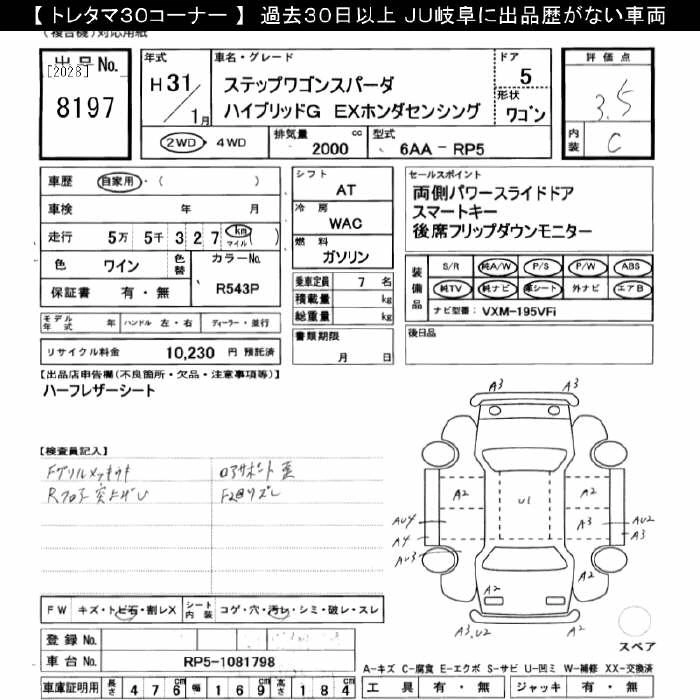 【 トレタマ30コーナー 】 過去30日以上 JU岐阜に出品歴がない車両
(複合機)対応用紙
出品No.
[2028]
8197
年式
H 31
1月
車名・グレード
ステップワゴンスパーダ
ハイブリッドG EXホンダセンシング
ドア
5
形状
ワゴン
評価点
3.5
内装
C
2WD・4WD
排気量 cc
2000
型式
6AA - RP5
車歴 自家用・( )
車検 年 月
走行 5万 5千 3 2 7 km マイル ( )
色 ワイン 色替 カラーNo.
R543P
保証書 有・無
シフト
AT
冷房
WAC
燃料
ガソリン
乗車定員 7 名
積載量 kg
総重量 kg
書類期限
月 日
セールスポイント
両側パワースライドドア
スマートキー
後席フリップダウンモニター
装備品
S/R 純A/W P/S P/W ABS
純TV 純ナビ 革シート 外ナビ エアB
ナビ型番: VXM-195VFi
後日品
モデル年式 年 ハンドル 左・右 ディーラー・並行
リサイクル料金 10,230 円 預託済
【出品店申告欄(不良箇所・欠品・注意事項等)】
ハーフレザーシート
【検査員記入】
Fグリルメッキキキ
Rフロア突上げU
ロアサポート歪
A3 A3
A2 U1 A2
AU4 A3 AU2
A4 A3
AU3 A2
A2
A3,U2 A2
スペア
FW キズ・トビ石・割レX シート内装 コゲ・穴・汚レ・シミ・破レ・スレ
登録No.
車台No. RP5-1081798
車庫証明用 長さ 476cm 幅 169cm 高さ 184cm
A-キズ C-腐食 E-エクボ S-サビ U-凹ミ W-補修 XX-交換済
工具 有・無 ジャッキ 有・無